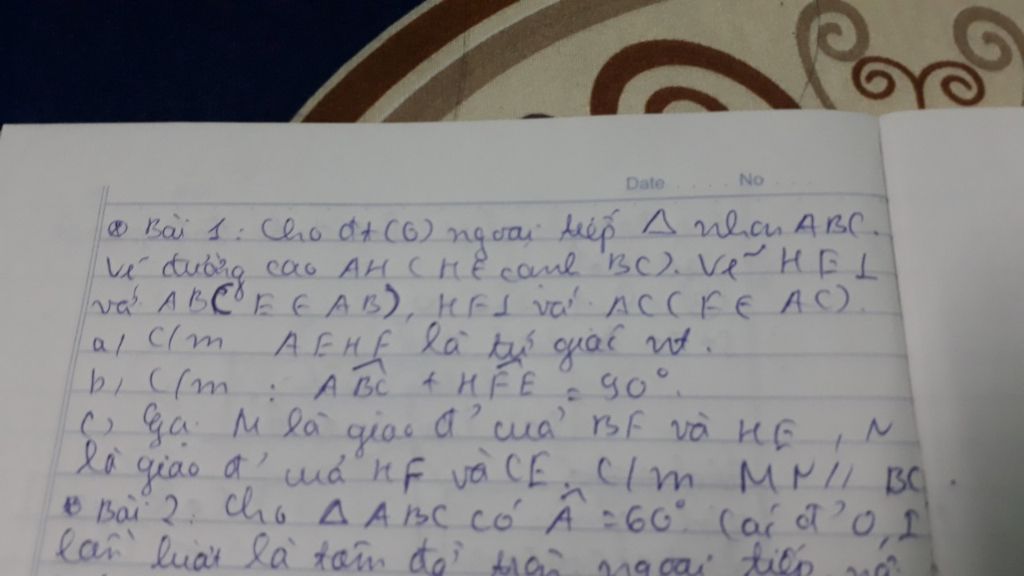 Date No
Bài 1: Cho đt (O) ngoại tiếp Δ nhọn ABC.
Vẽ đường cao AH (H ∈ cạnh BC). Vẽ HE ⊥
với AB (E ∈ AB), HF ⊥ với AC (F ∈ AC).
a) C/m AEHF là tứ giác nt.
b) C/m : ABC + HFE = 90°.
c) Gọi M là giao đ' của BF và HE, N
là giao đ' của HF và CE. C/m MN // BC.
Bài 2. Cho Δ ABC có Â = 60°. Các đ' O, I
lần lượt là tâm đg tròn ngoại tiếp